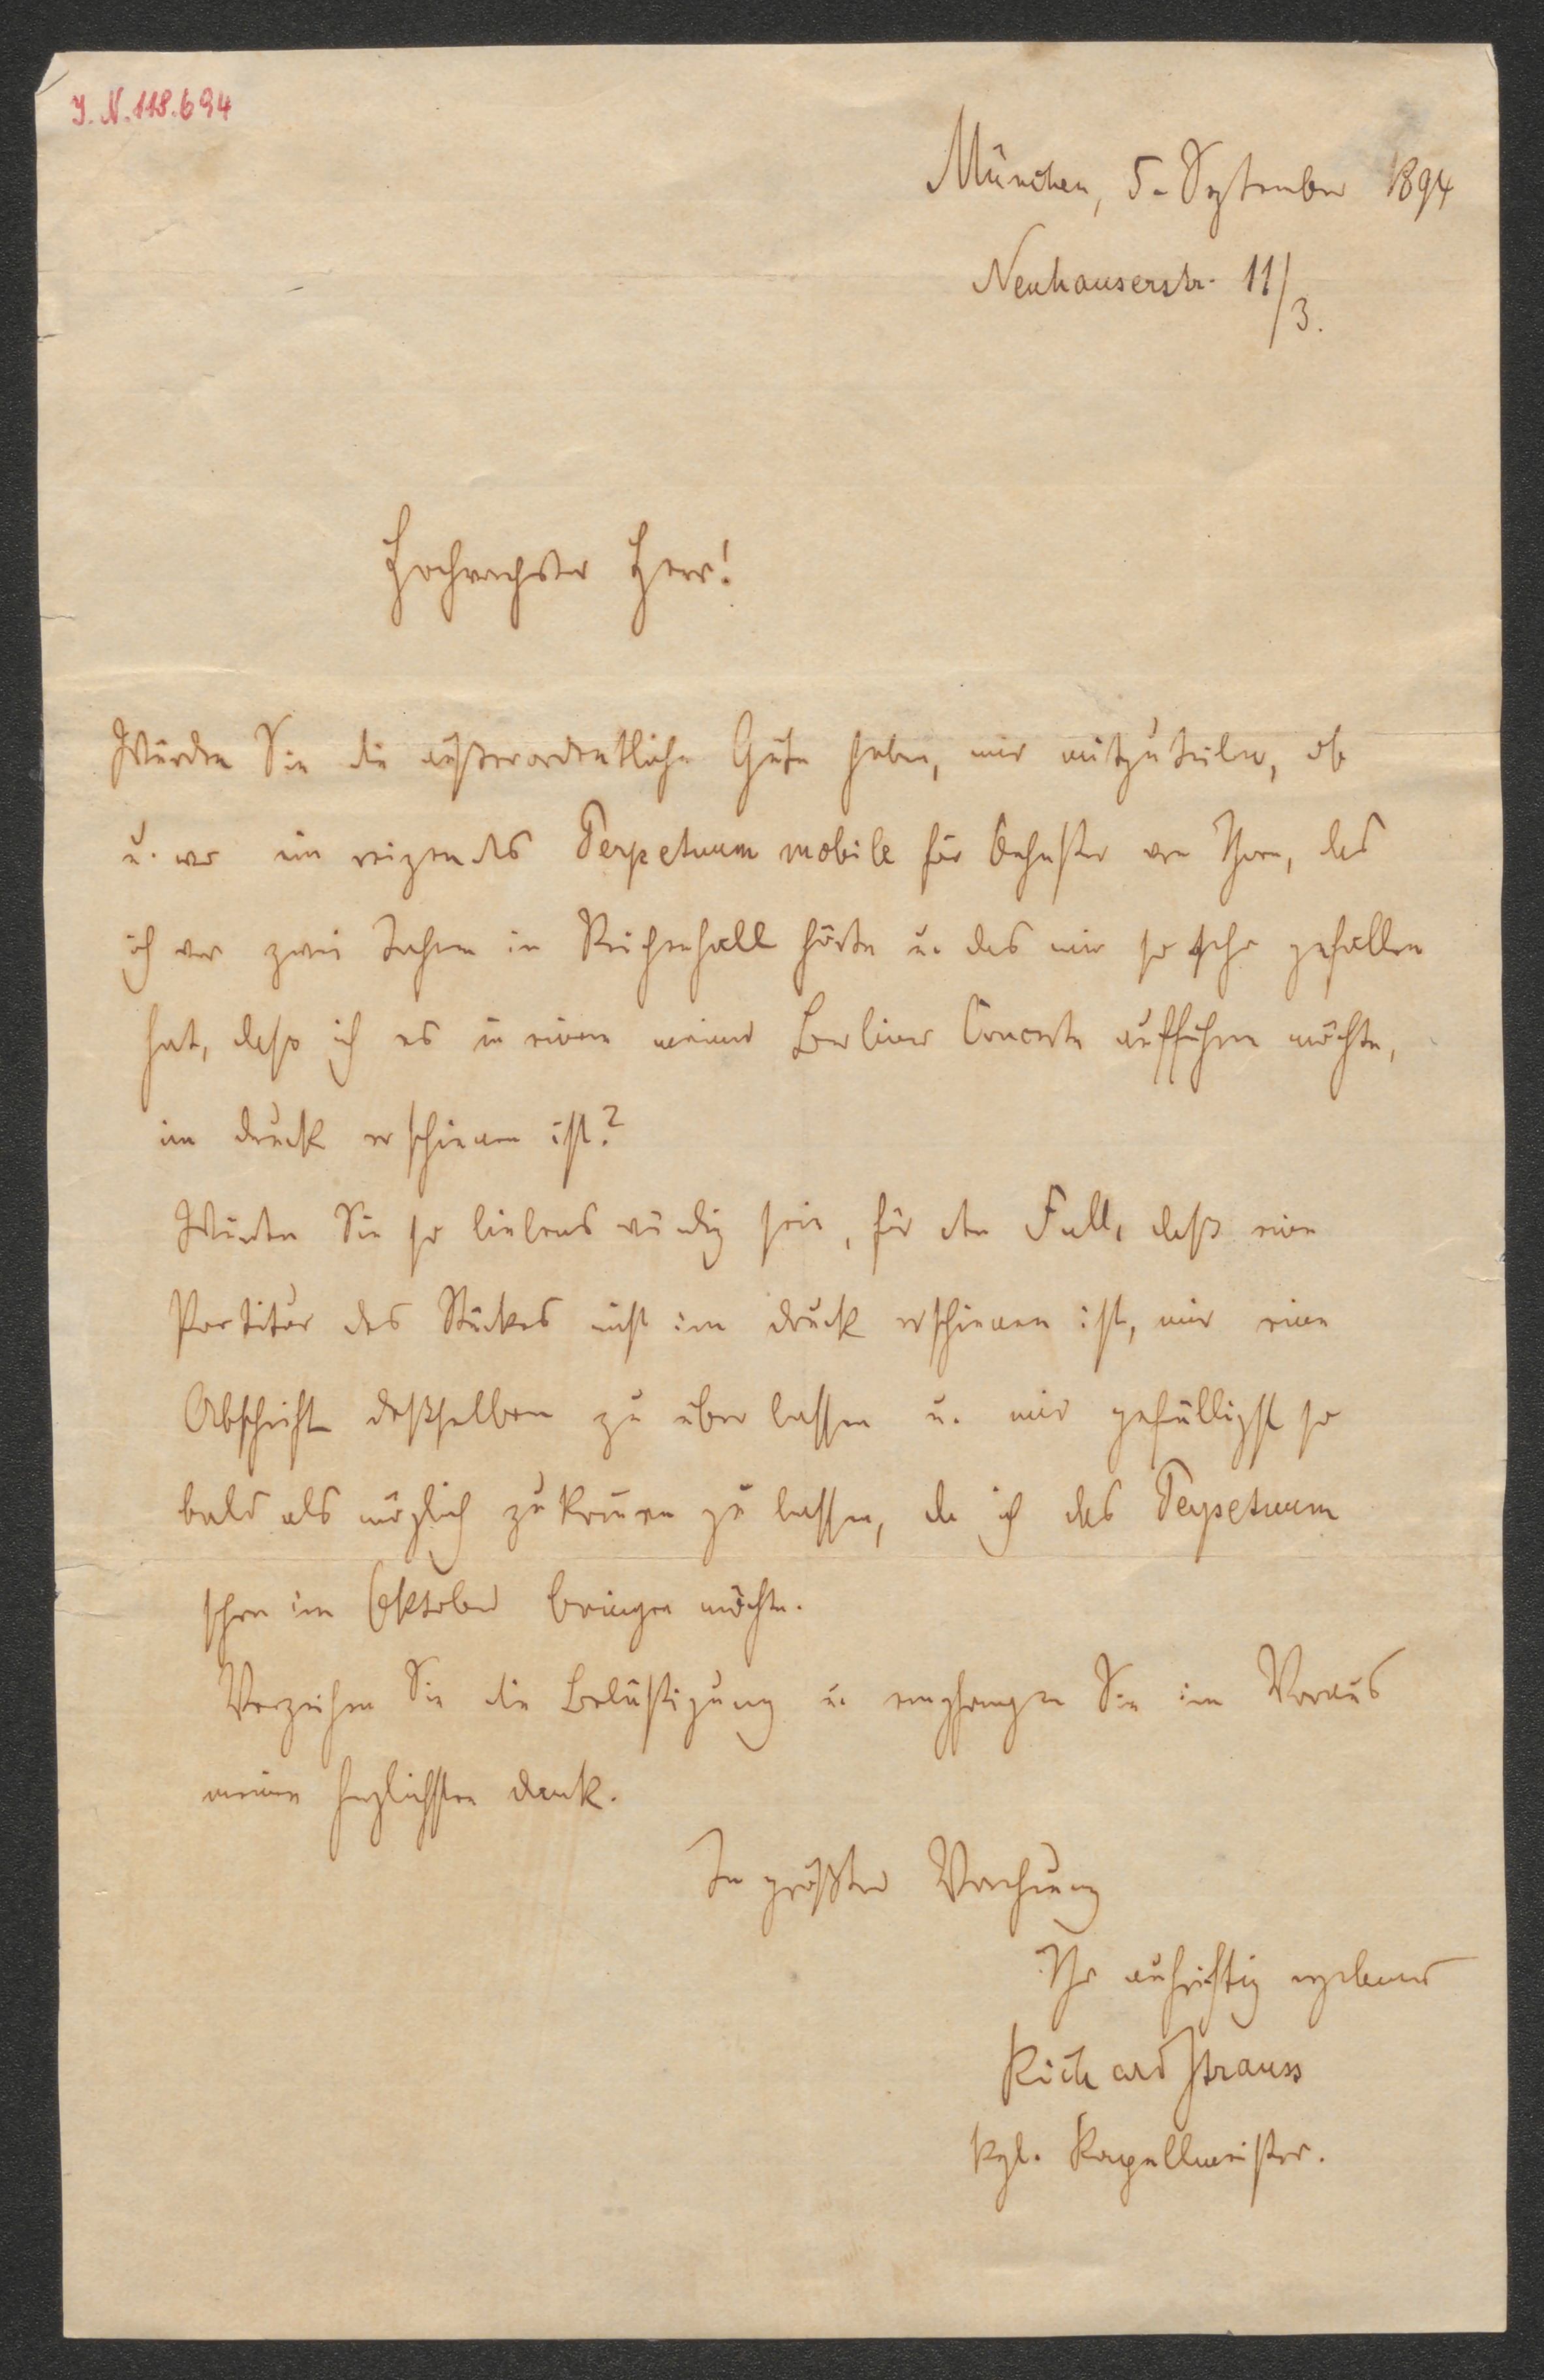 J. N. 118.694
München, 5. September 1894
Neuhauserstr. 11/3.
Hochverehrter Herr!
Würden Sie die außerordentliche Güte haben, mir mitzuteilen, ob
u. wo ein reizendes Perpetuum mobile für Orchester von Ihnen, das
ich vor zwei Jahren in Reichenhall hörte u. das mir so sehr gefallen
hat, daß ich es in einem meiner Berliner Concerte aufführen möchte,
im Druck erschienen ist?
Würden Sie so liebenswürdig sein, für den Fall, daß eine
Partitur des Stückes nicht im Druck erschienen ist, mir eine
Abschrift desselben zu überlassen u. mir gefälligst so
bald als möglich zukommen zu lassen, da ich das Perpetuum
schon im Oktober bringen möchte.
Verzeihen Sie die Belästigung u. empfangen Sie im Voraus
meinen herzlichsten Dank.
In größter Verehrung
Ihr aufrichtig ergebener
Richard Strauss
kgl. Kapellmeister.